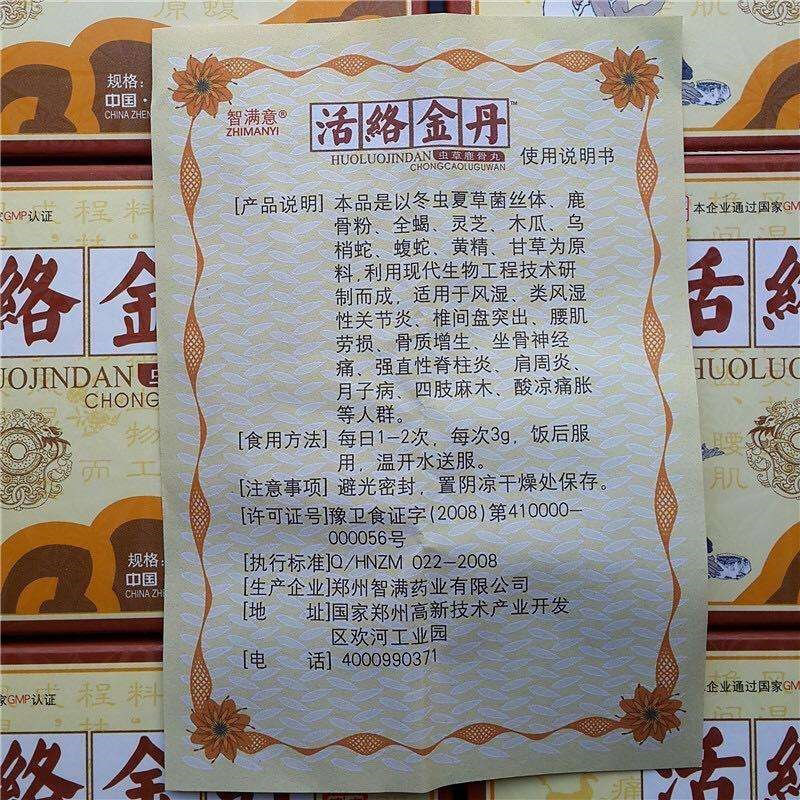 智满意®
ZHIMANYI
活络金丹™
HUOLUOJINDAN 虫草鹿骨丸
CHONGCAOLUGUWAN
使用说明书
[产品说明] 本品是以冬虫夏草菌丝体、鹿
骨粉、全蝎、灵芝、木瓜、乌
梢蛇、蝮蛇、黄精、甘草为原
料,利用现代生物工程技术研
制而成，适用于风湿、类风湿
性关节炎、椎间盘突出、腰肌
劳损、骨质增生、坐骨神经
痛、强直性脊柱炎、肩周炎、
月子病、四肢麻木、酸凉痛胀
等人群。
[食用方法] 每日1-2次，每次3g，饭后服
用，温开水送服。
[注意事项] 避光密封，置阴凉干燥处保存。
[许可证号]豫卫食证字(2008)第410000-
000056号
[执行标准]Q/HNZM 022-2008
[生产企业]郑州智满药业有限公司
[地 址]国家郑州高新技术产业开发
区欢河工业园
[电 话] 4000990371
规格:
中国·
CHINA ZHEN
原蝮
腰肌
家GMP认证
程料
絡金
UOJINDAN 虫
CHONG
物
而工
规格:
中国·
CHINA ZHE
本企业通过国家GM
活
HUOLUO
腰
肌
GMP认证
程料
絡金
本企业通过国家GM
活
痛